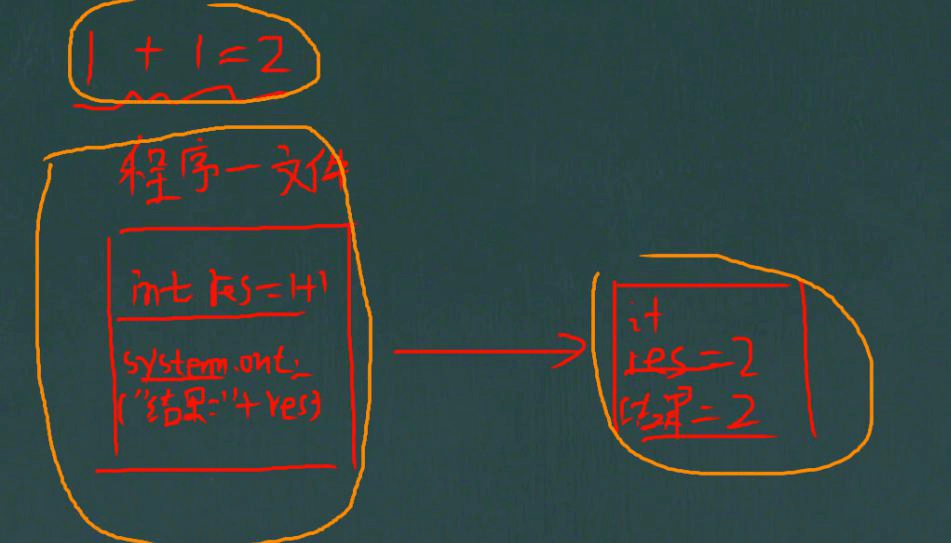 1 + 1 = 2
程序一文件
int res = 1+1
system.out.
("结果="+res)
it
res = 2
结果 = 2